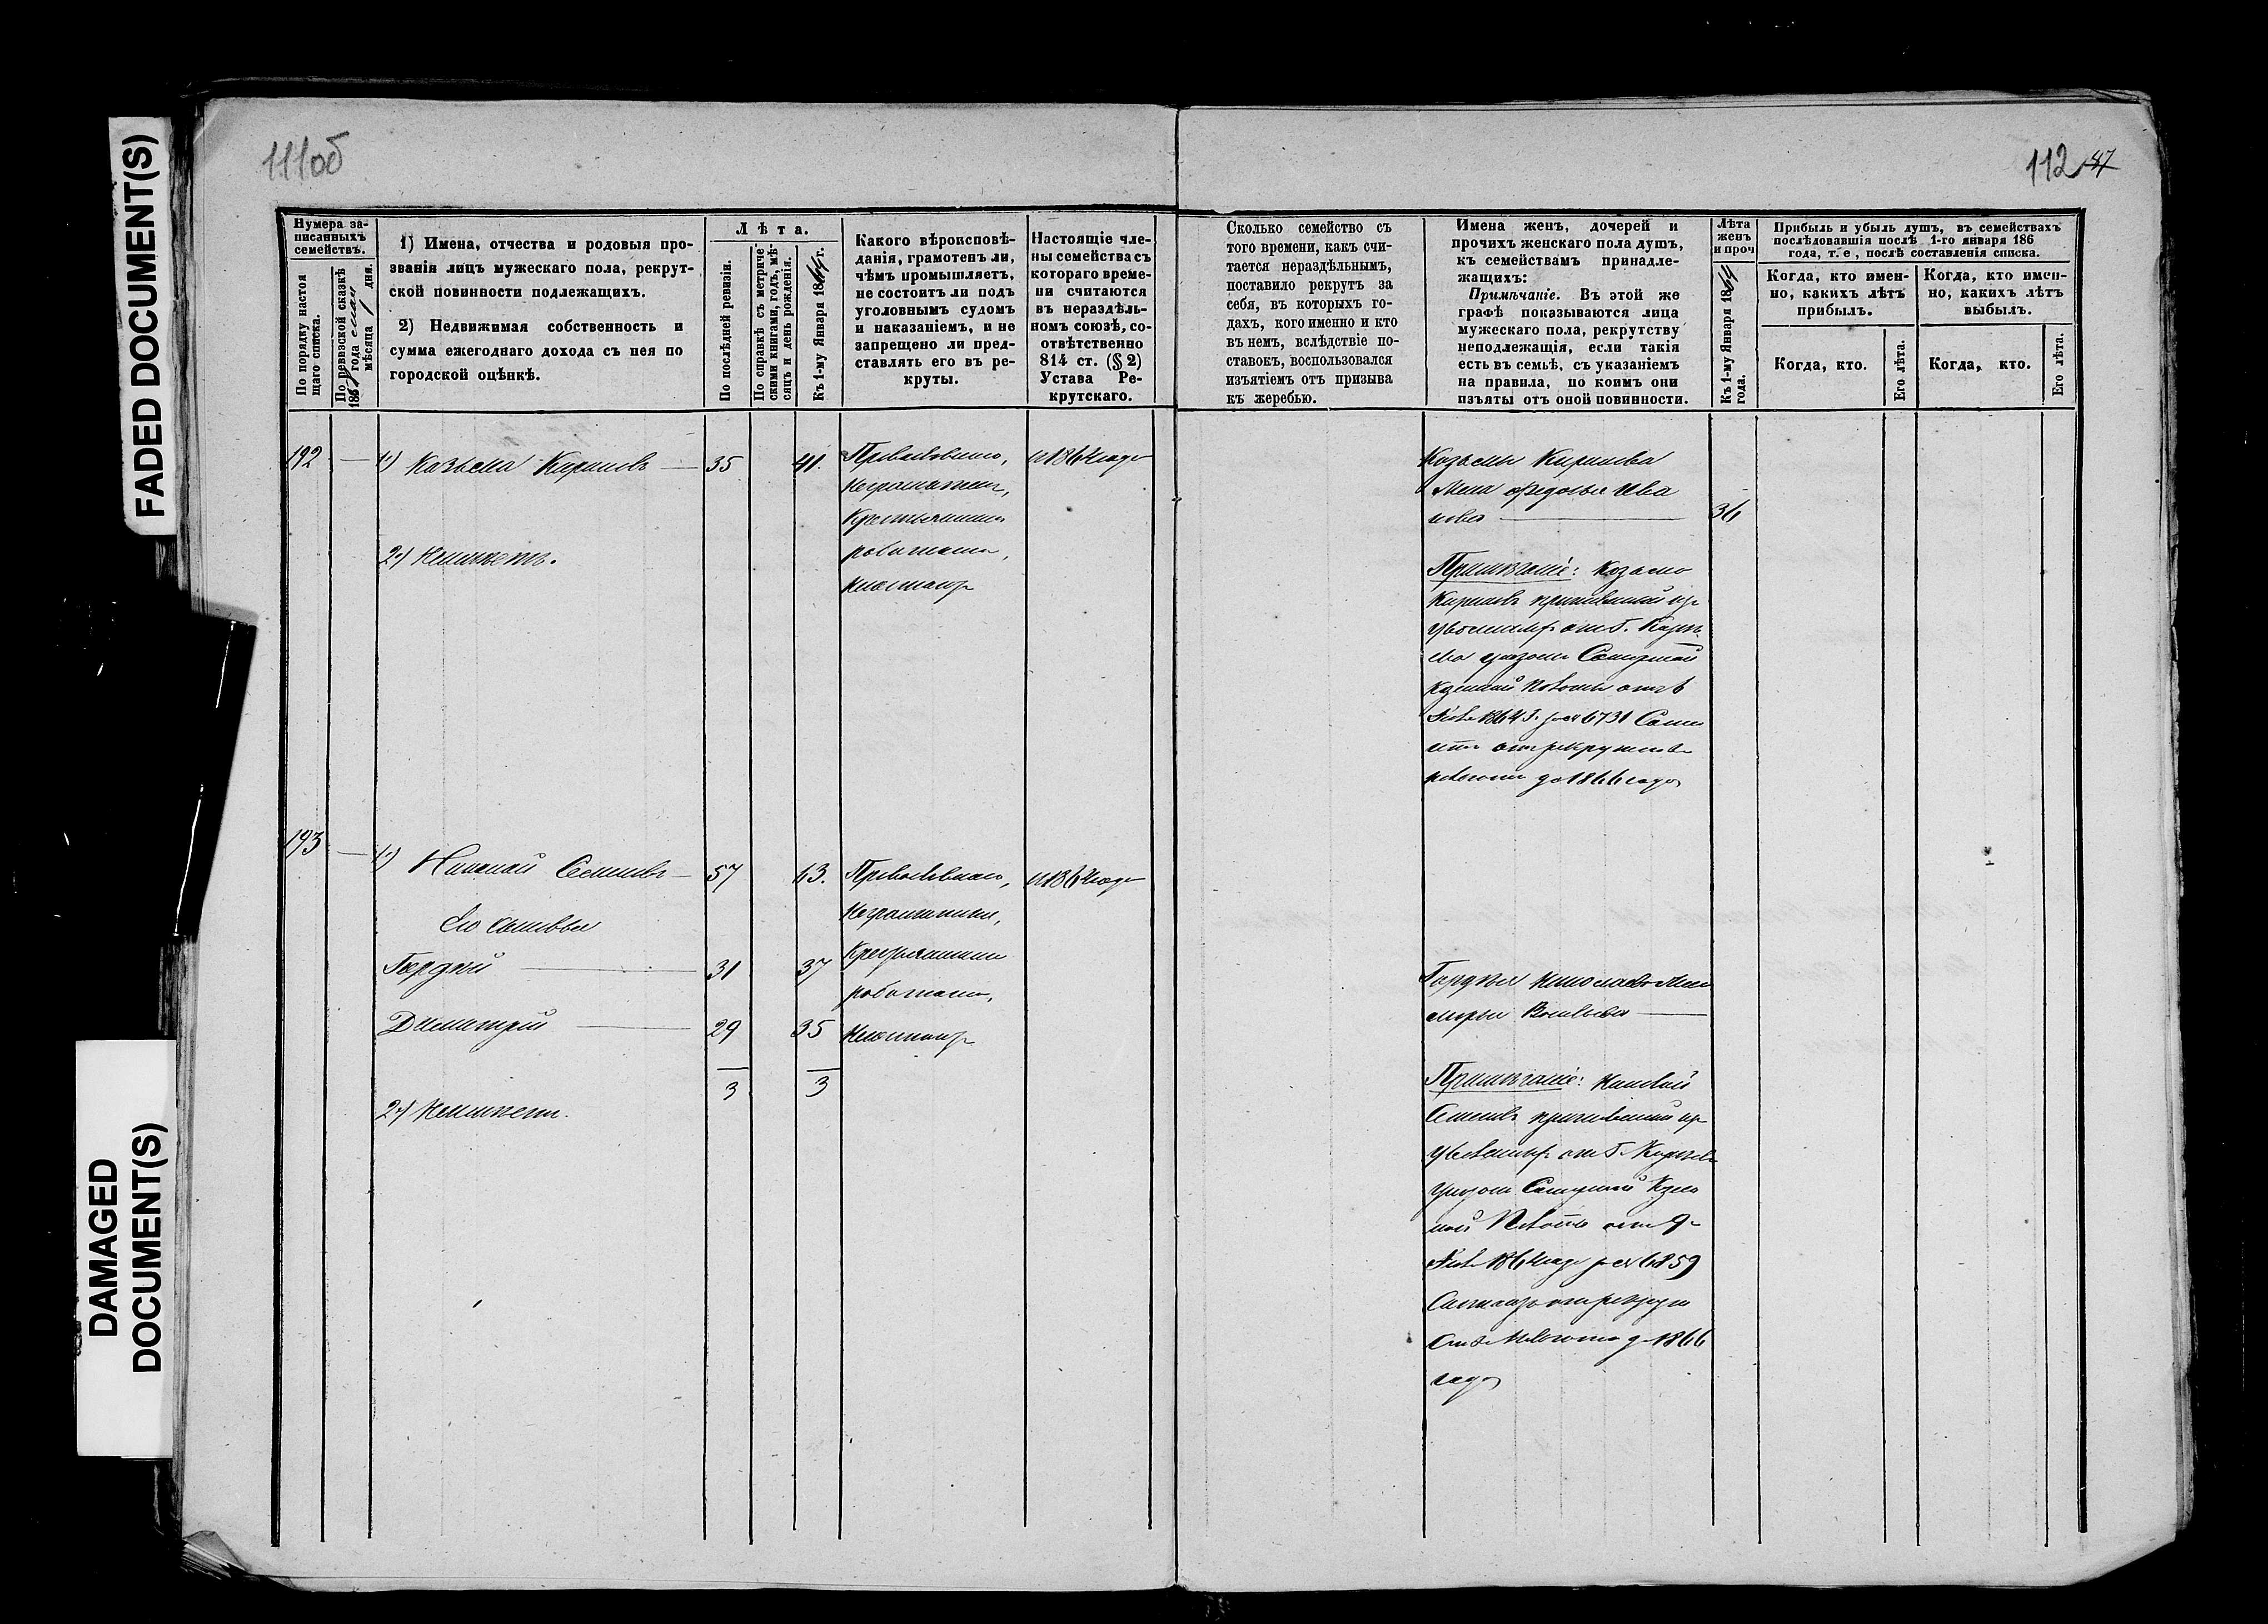 FADED DOCUMENT(S)
DAMAGED
DOCUMENT(S)
111об
112 47
Нумера за-
писанныхъ
семействъ.
По порядку настоя
щаго списка.
По ревизской сказкѣ
года
мѣсяца 1 дня.
1) Имена, отчества и родовыя про-
званія лицъ мужескаго пола, рекрут-
ской повинности подлежащихъ.
2) Недвижимая собственность и
сумма ежегоднаго дохода съ нея по
городской оцѣнкѣ.
Лѣта.
По послѣдней ревизіи.
По справкѣ съ метриче
скими книгами, годъ, мѣ-
сяцъ и день рожденія.
Къ 1-му Января 1864 г.
Какого вѣроисповѣ-
данія, грамотенъ ли,
чѣмъ промышляетъ,
не состоитъ ли подъ
уголовнымъ судомъ
и наказаніемъ, и не
запрещено ли пред-
ставлять его въ ре-
круты.
Настоящіе чле-
ны семейства съ
котораго време-
ни считаются
въ нераздѣль-
номъ союзѣ, со-
отвѣтственно
814 ст. (§ 2)
Устава Ре-
крутскаго.
Сколько семейство съ
того времени, какъ счи-
тается нераздѣльнымъ,
поставило рекрутъ за
себя, въ которыхъ го-
дахъ, кого именно и кто
въ немъ, вслѣдствіе по-
ставокъ, воспользовался
изъятіемъ отъ призыва
къ жеребью.
Имена женъ, дочерей и
прочихъ женскаго пола душъ,
къ семействамъ принадле-
жащихъ:
Примѣчаніе. Въ этой же
графѣ показываются лица
мужескаго пола, рекрутству
неподлежащія, если такія
есть въ семьѣ, съ указаніемъ
на правила, по коимъ они
изъяты отъ оной повинности.
Лѣта
женъ
и проч
Къ 1-му Января 1864
года.
Прибыль и убыль душъ, въ семействахъ
послѣдовавшія послѣ 1-го января 186
года, т. е, послѣ составленія списка.
Когда, кто имен-
но, какихъ лѣтъ
прибылъ.
Когда, кто имен-
но, какихъ лѣтъ
выбылъ.
Когда, кто.
Его лѣта.
Когда, кто.
Его лѣта.
192 — 1) Козьма Кириловъ — 35 41. Православнаго, съ 1864 года
Неграмотенъ,
Крестьянскими
работами,
Несостоитъ
2) Неимѣетъ.
Козьмы Кирилова
Жена Федосья Ива
нова — 36
Примѣчаніе: Козьма
Кириловъ причисленный
отъ Г.
указомъ Самарской
Казенной Палаты отъ 6
1864 г. за № 6731
отъ рекрутской
до 1866 года
193 — 1) Николай Семеновъ — 57 63. Православнаго, съ 1864 года
Его сыновья
Неграмотны,
Гордѣй — 31 37 Крестьянскими
работами,
Димитрій — 29 35 Несостоитъ
3 3
2) Неимѣетъ.
Гордѣя Николаева Жена
Марья Васильева —
Примѣчаніе: Николай
Семеновъ причисленный
отъ Г.
Указомъ Самарской Казен
ной Палаты отъ 9
1864 года за № 6859
отъ рекрут
ской до 1866
года